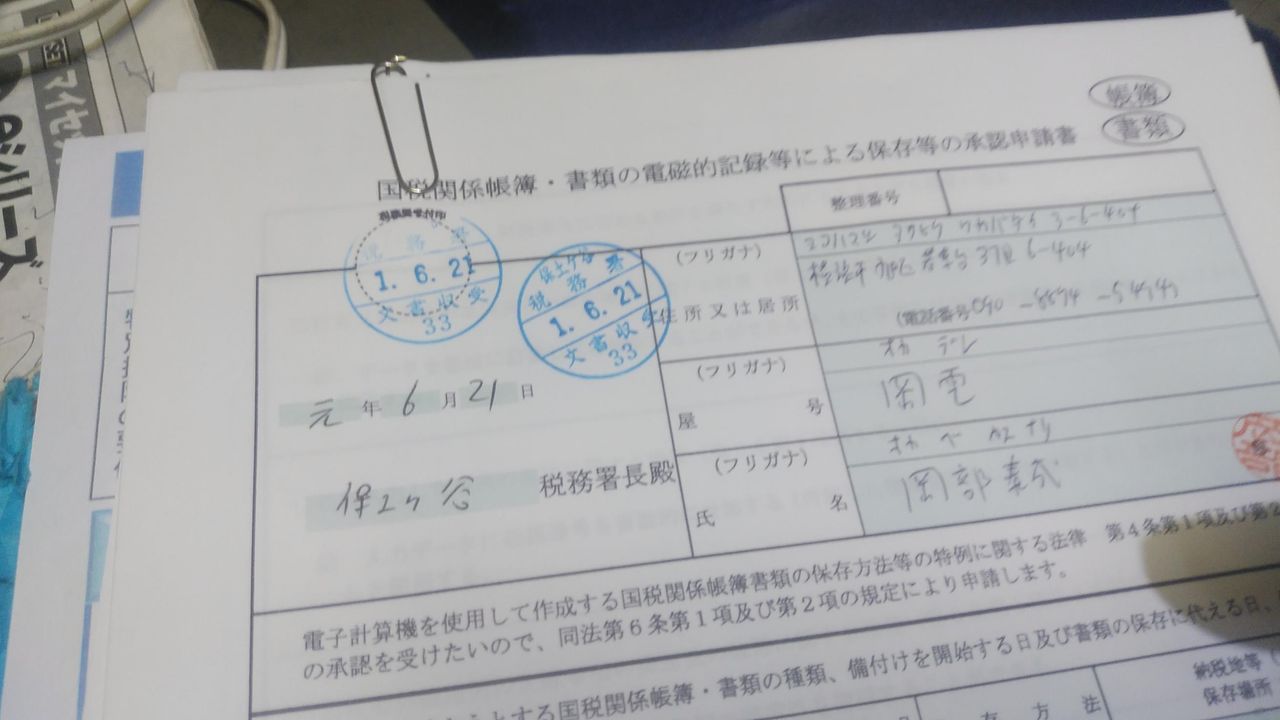 帳簿
書類
国税関係帳簿・書類の電磁的記録等による保存等の承認申請書
整理番号
税務署
1. 6. 21
文書収受
33
保土ケ谷
税務署
1. 6. 21
文書収受
33
元 年 6 月 21 日
保土ケ谷 税務署長殿
(フリガナ)
住所又は居所
3-6-404
6-404
(電話番号
(フリガナ) オカ デン
屋号 岡電
(フリガナ) オカ ベ
氏名 岡部
電子計算機を使用して作成する国税関係帳簿書類の保存方法等の特例に関する法律 第4条第1項及び第2
の承認を受けたいので、同法第6条第1項及び第2項の規定により申請します。
とする国税関係帳簿・書類の種類、備付けを開始する日及び書類の保存に代える日、
方法
納税地等
保存場所